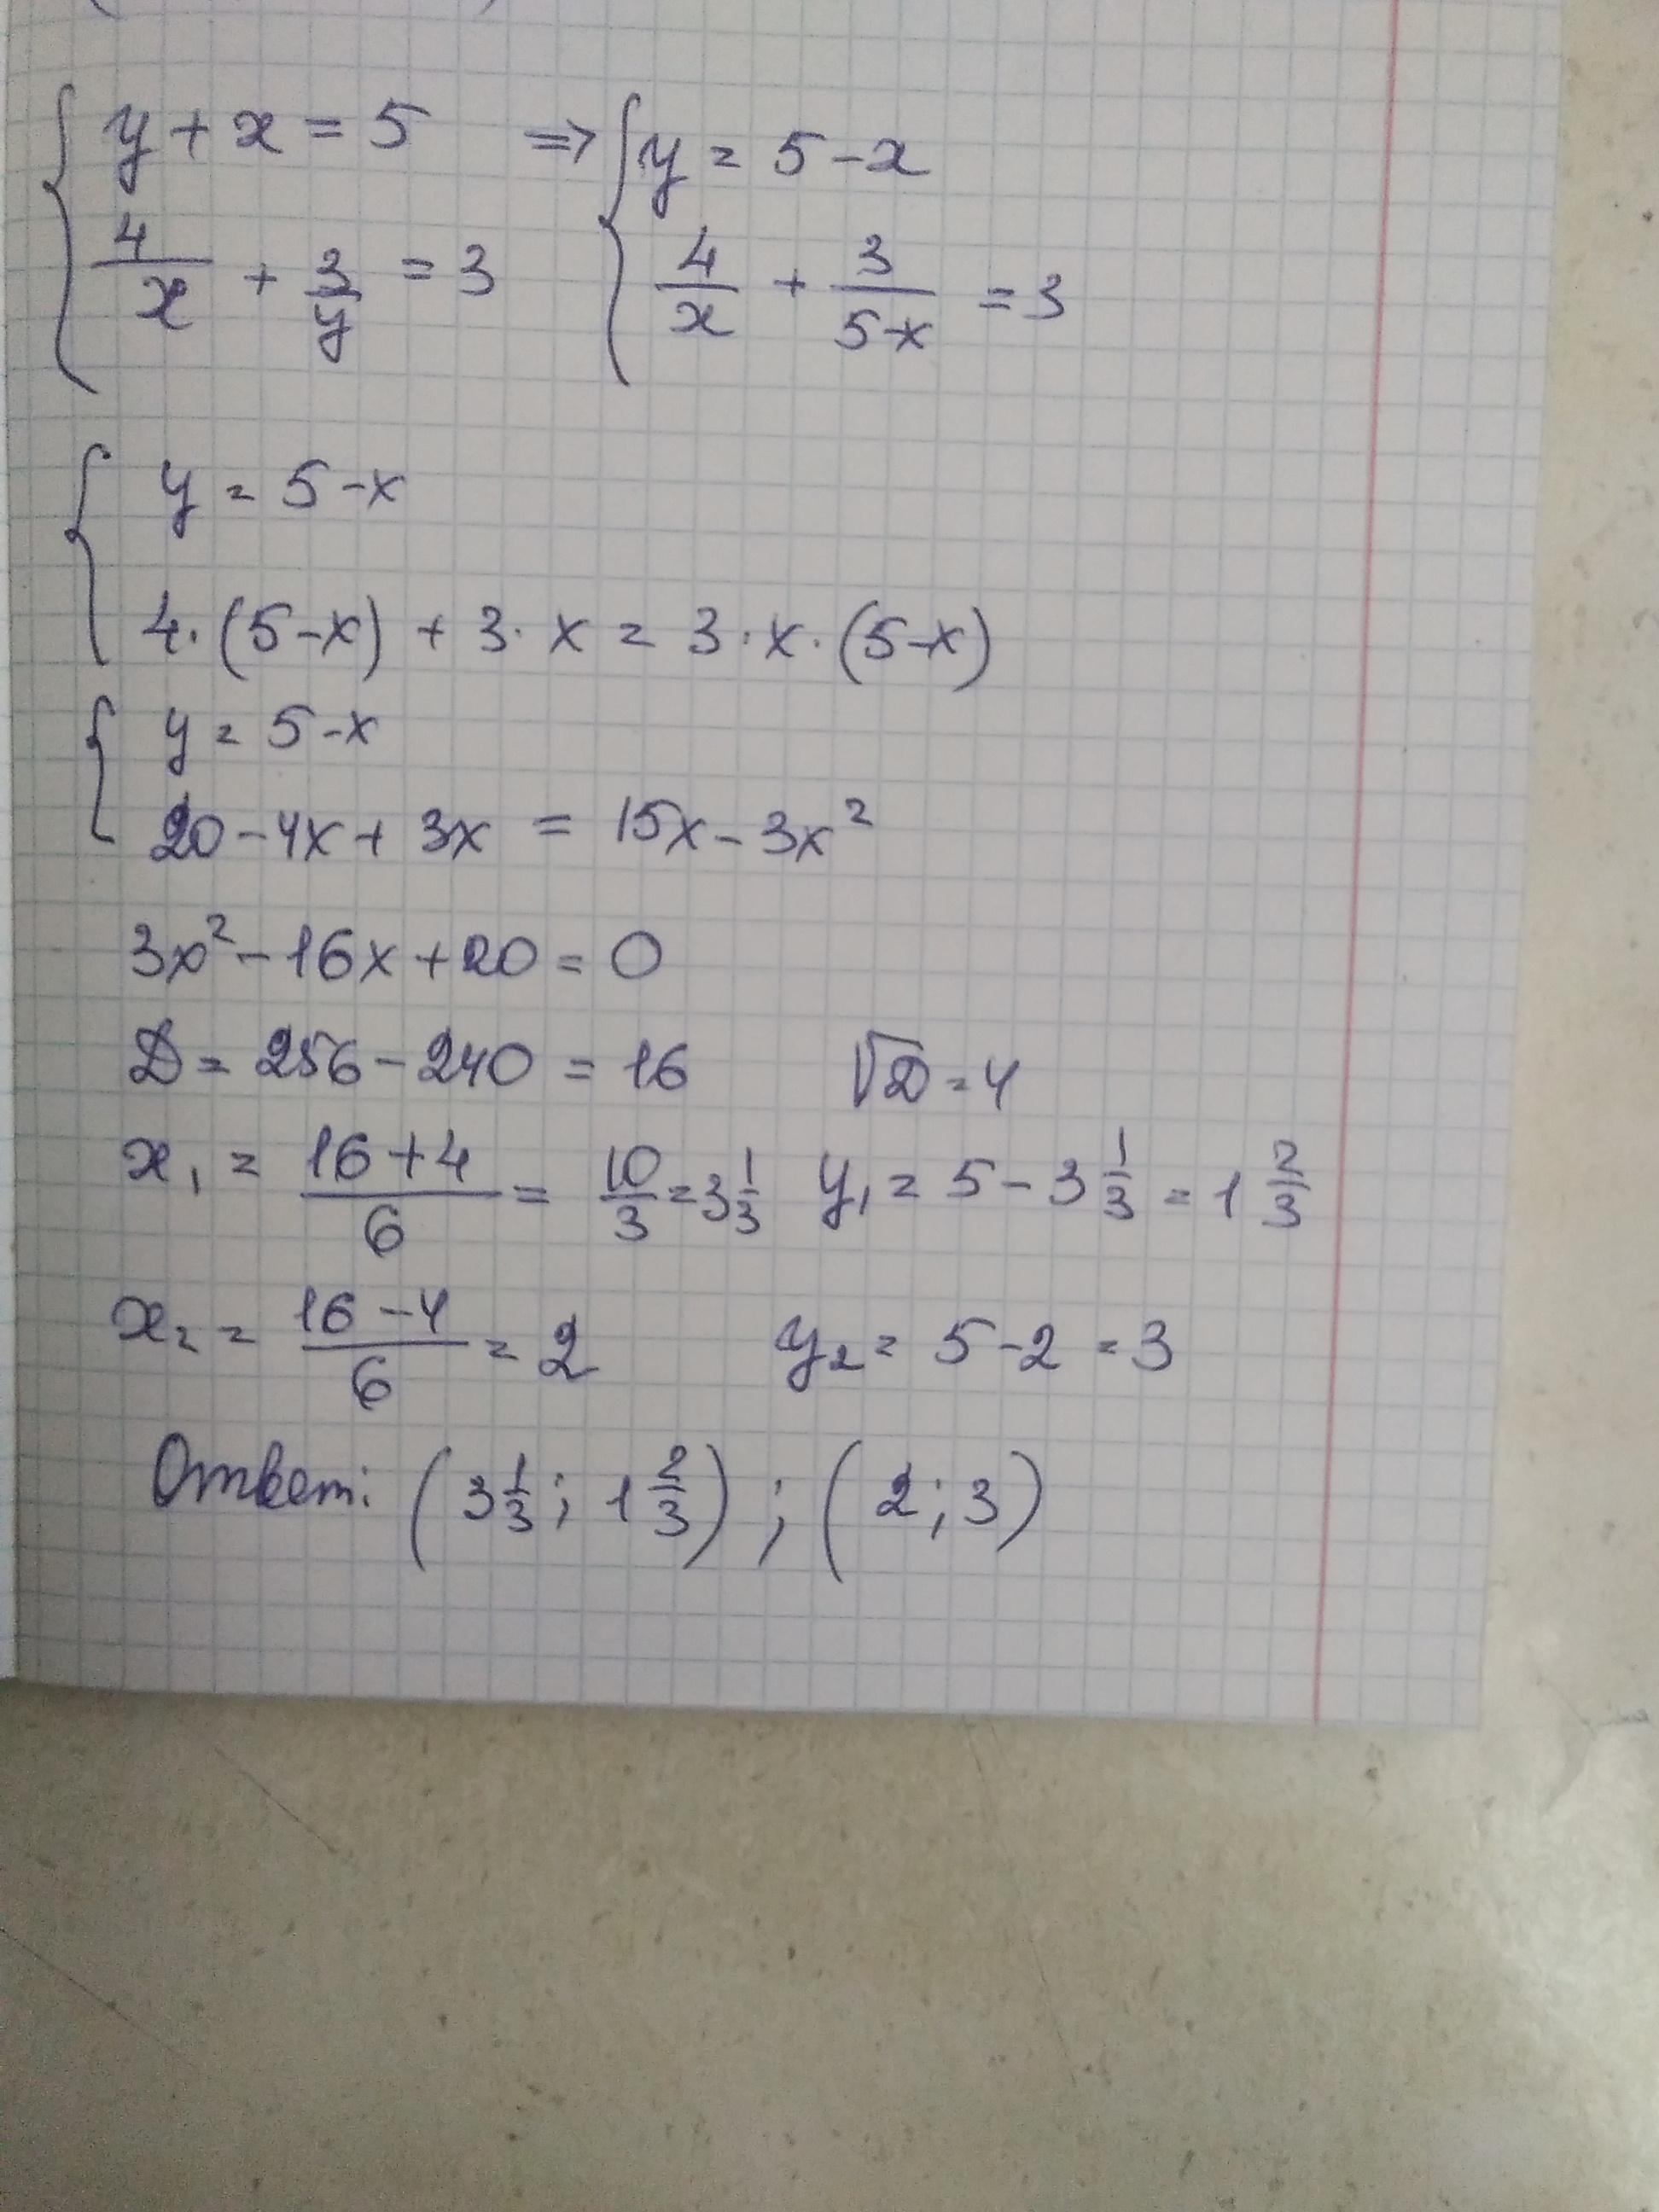 { y + x = 5 => { y = 5 - x
4/x + 3/y = 3 4/x + 3/(5-x) = 3
{ y = 5 - x
4·(5-x) + 3·x = 3·x·(5-x)
{ y = 5 - x
20 - 4x + 3x = 15x - 3x²
3x² - 16x + 20 = 0
D = 256 - 240 = 16 √D = 4
x₁ = (16+4)/6 = 10/3 = 3 1/3 y₁ = 5 - 3 1/3 = 1 2/3
x₂ = (16-4)/6 = 2 y₂ = 5 - 2 = 3
Ответ: (3 1/3; 1 2/3); (2; 3)